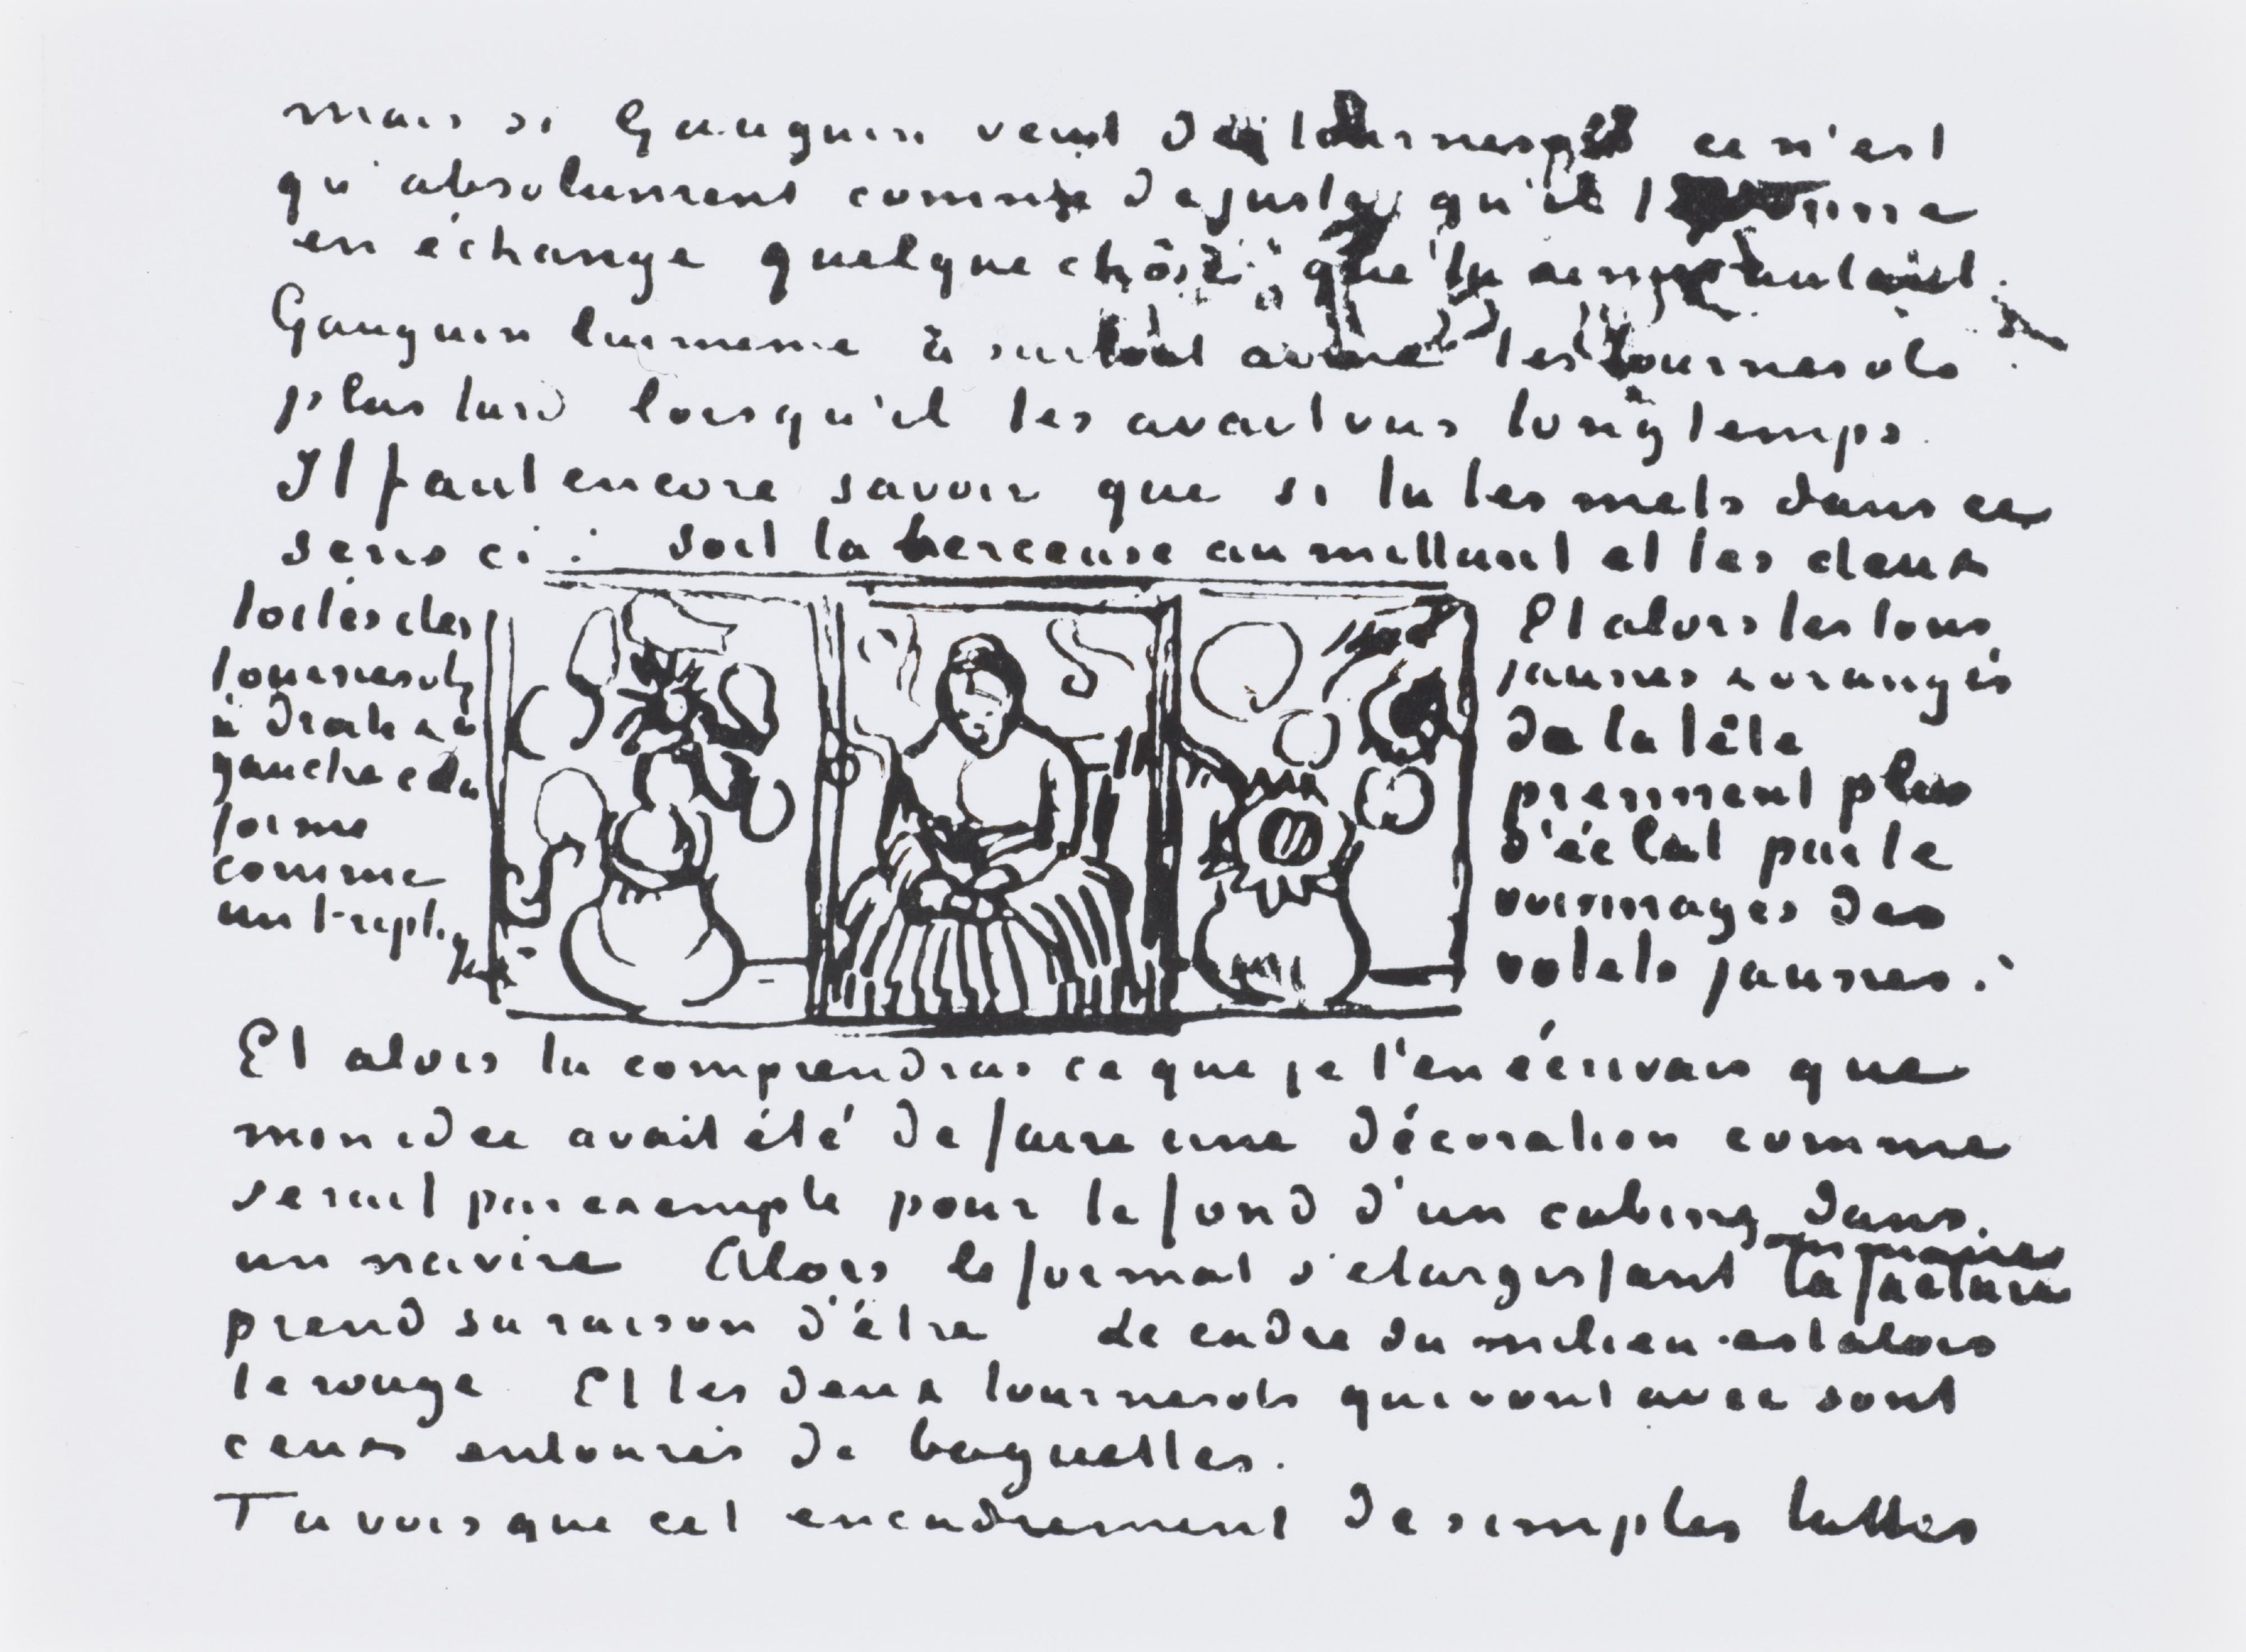 mais si Gauguin veut des tournesols ce n'est
qu'absolument comme de juste qu'il te donne
en échange quelque chôse que tu aimes autant.
Gauguin luimeme à surtout aimé les tournesols
plus tard lorsqu'il les avait vus longtemps.
Il faut encore savoir que si tu les mets dans ce
sens ci: soit la berceuse au millant et les deux
toiles des
tournesols
à droite & à
gauche cela
forme
comme
un triptyque.
Et alors les tons
jaunes & orangés
de la tête
prennent plus
d'éclat par le
voisinages des
volets jaunes.
Et alors tu comprendras ce que je t'en écrivais que
mon idee avait été de faire une décoration comme
serait par exemple pour le fond d'un cabine dans
un navire Alors le format s'elargissant la facture
prend sa raison d'être Le cadre du milieu est alors
le rouge Et les deux tournesols qui vont avec sont
ceux entourés de baguettes.
Tu vois que cet encadrement de simples lattes